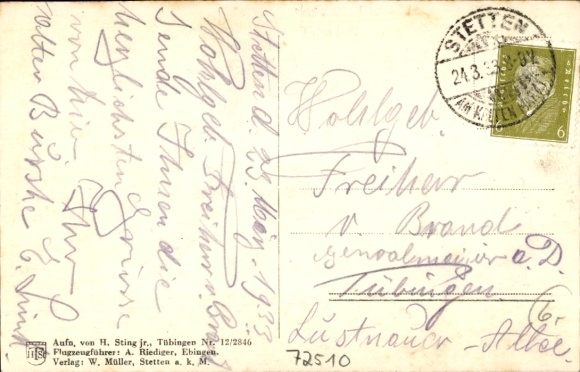 Stetten d. 23. März 1933
Wohlgeb. Freiherr v. Brand
Sende Ihnen die
herzlichsten Grüsse
von hier Ihr
alter Bursche E.
Aufn. von H. Sting jr., Tübingen Nr. 12/2846
Flugzeugführer: A. Riediger, Ebingen.
Verlag: W. Müller, Stetten a. k. M.
STETTEN
24.3.33
6 6
Wohlgeb.
Freiherr
v. Brand
Generalmajor a. D.
Tübingen
Lustnauer-Allee
72510